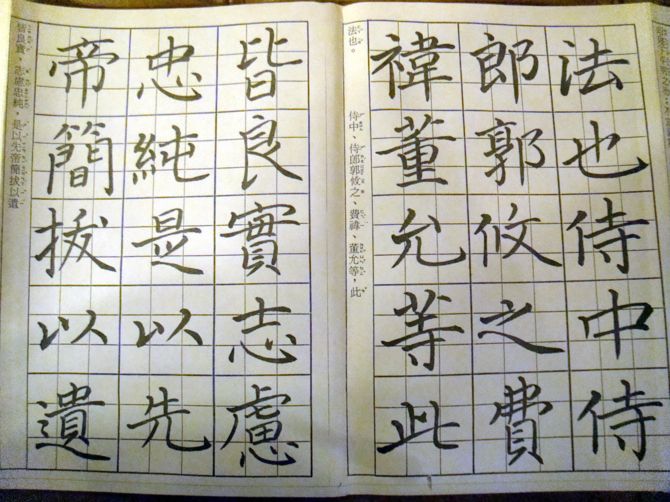 法也侍中侍
郎郭攸之費
禕董允等此
法也。 侍中、侍郎郭攸之、費禕、董允等，此
皆良實志慮
忠純是以先
帝簡拔以遺
皆良實，志慮忠純，是以先帝簡拔以遺